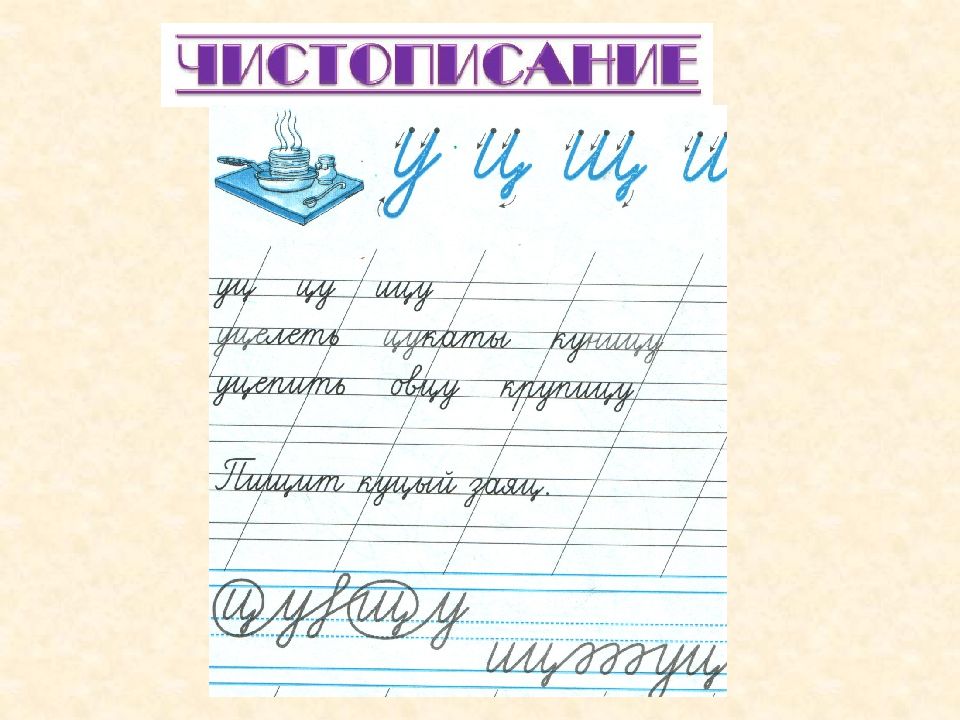 ЧИСТОПИСАНИЕ
у ц щ и
уц цу ицу
уцелеть цукаты куницу
уцепить овцу крупицу
Пищит куцый заяц.